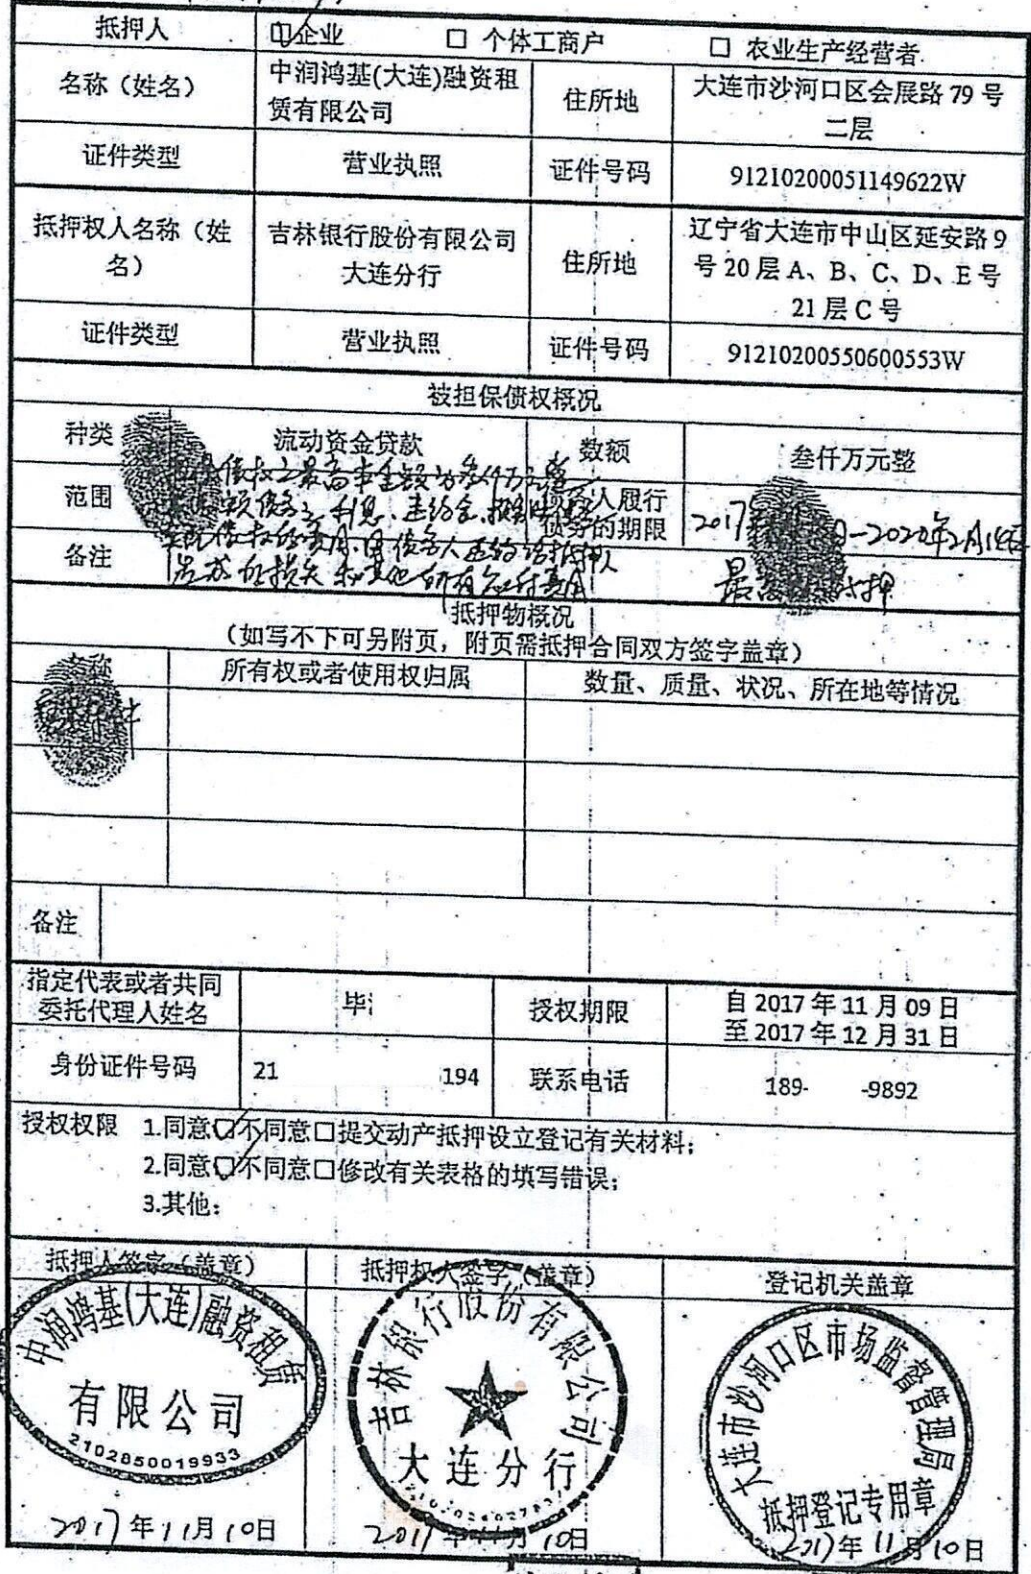 抵押人 企业 □ 个体工商户 □ 农业生产经营者
名称（姓名） 中润鸿基(大连)融资租
赁有限公司 住所地 大连市沙河口区会展路 79 号
二层
证件类型 营业执照 证件号码 91210200051149622W
抵押权人名称（姓
名） 吉林银行股份有限公司
大连分行 住所地 辽宁省大连市中山区延安路 9
号 20 层 A、B、C、D、E 号
21 层 C 号
证件类型 营业执照 证件号码 91210200550600553W
被担保债权概况
种类 流动资金贷款 数额 叁仟万元整
范围 债务人履行
债务的期限 2017 -2020年2月14日
备注
抵押物概况
（如写不下可另附页，附页需抵押合同双方签字盖章）
名称 所有权或者使用权归属 数量、质量、状况、所在地等情况
备注
指定代表或者共同
委托代理人姓名 毕 授权期限 自 2017 年 11 月 09 日
至 2017 年 12 月 31 日
身份证件号码 21 194 联系电话 189- -9892
授权权限 1.同意☑不同意□提交动产抵押设立登记有关材料；
2.同意☑不同意□修改有关表格的填写错误；
3.其他：
抵押人签字（盖章） 抵押权人签字（盖章） 登记机关盖章
中润鸿基(大连)融资租赁
有限公司
2102850019933
吉林银行股份有限公司
大连分行
大连市沙河口区市场监督管理局
抵押登记专用章
2017年11月10日 2017年11月10日 2017年11月10日